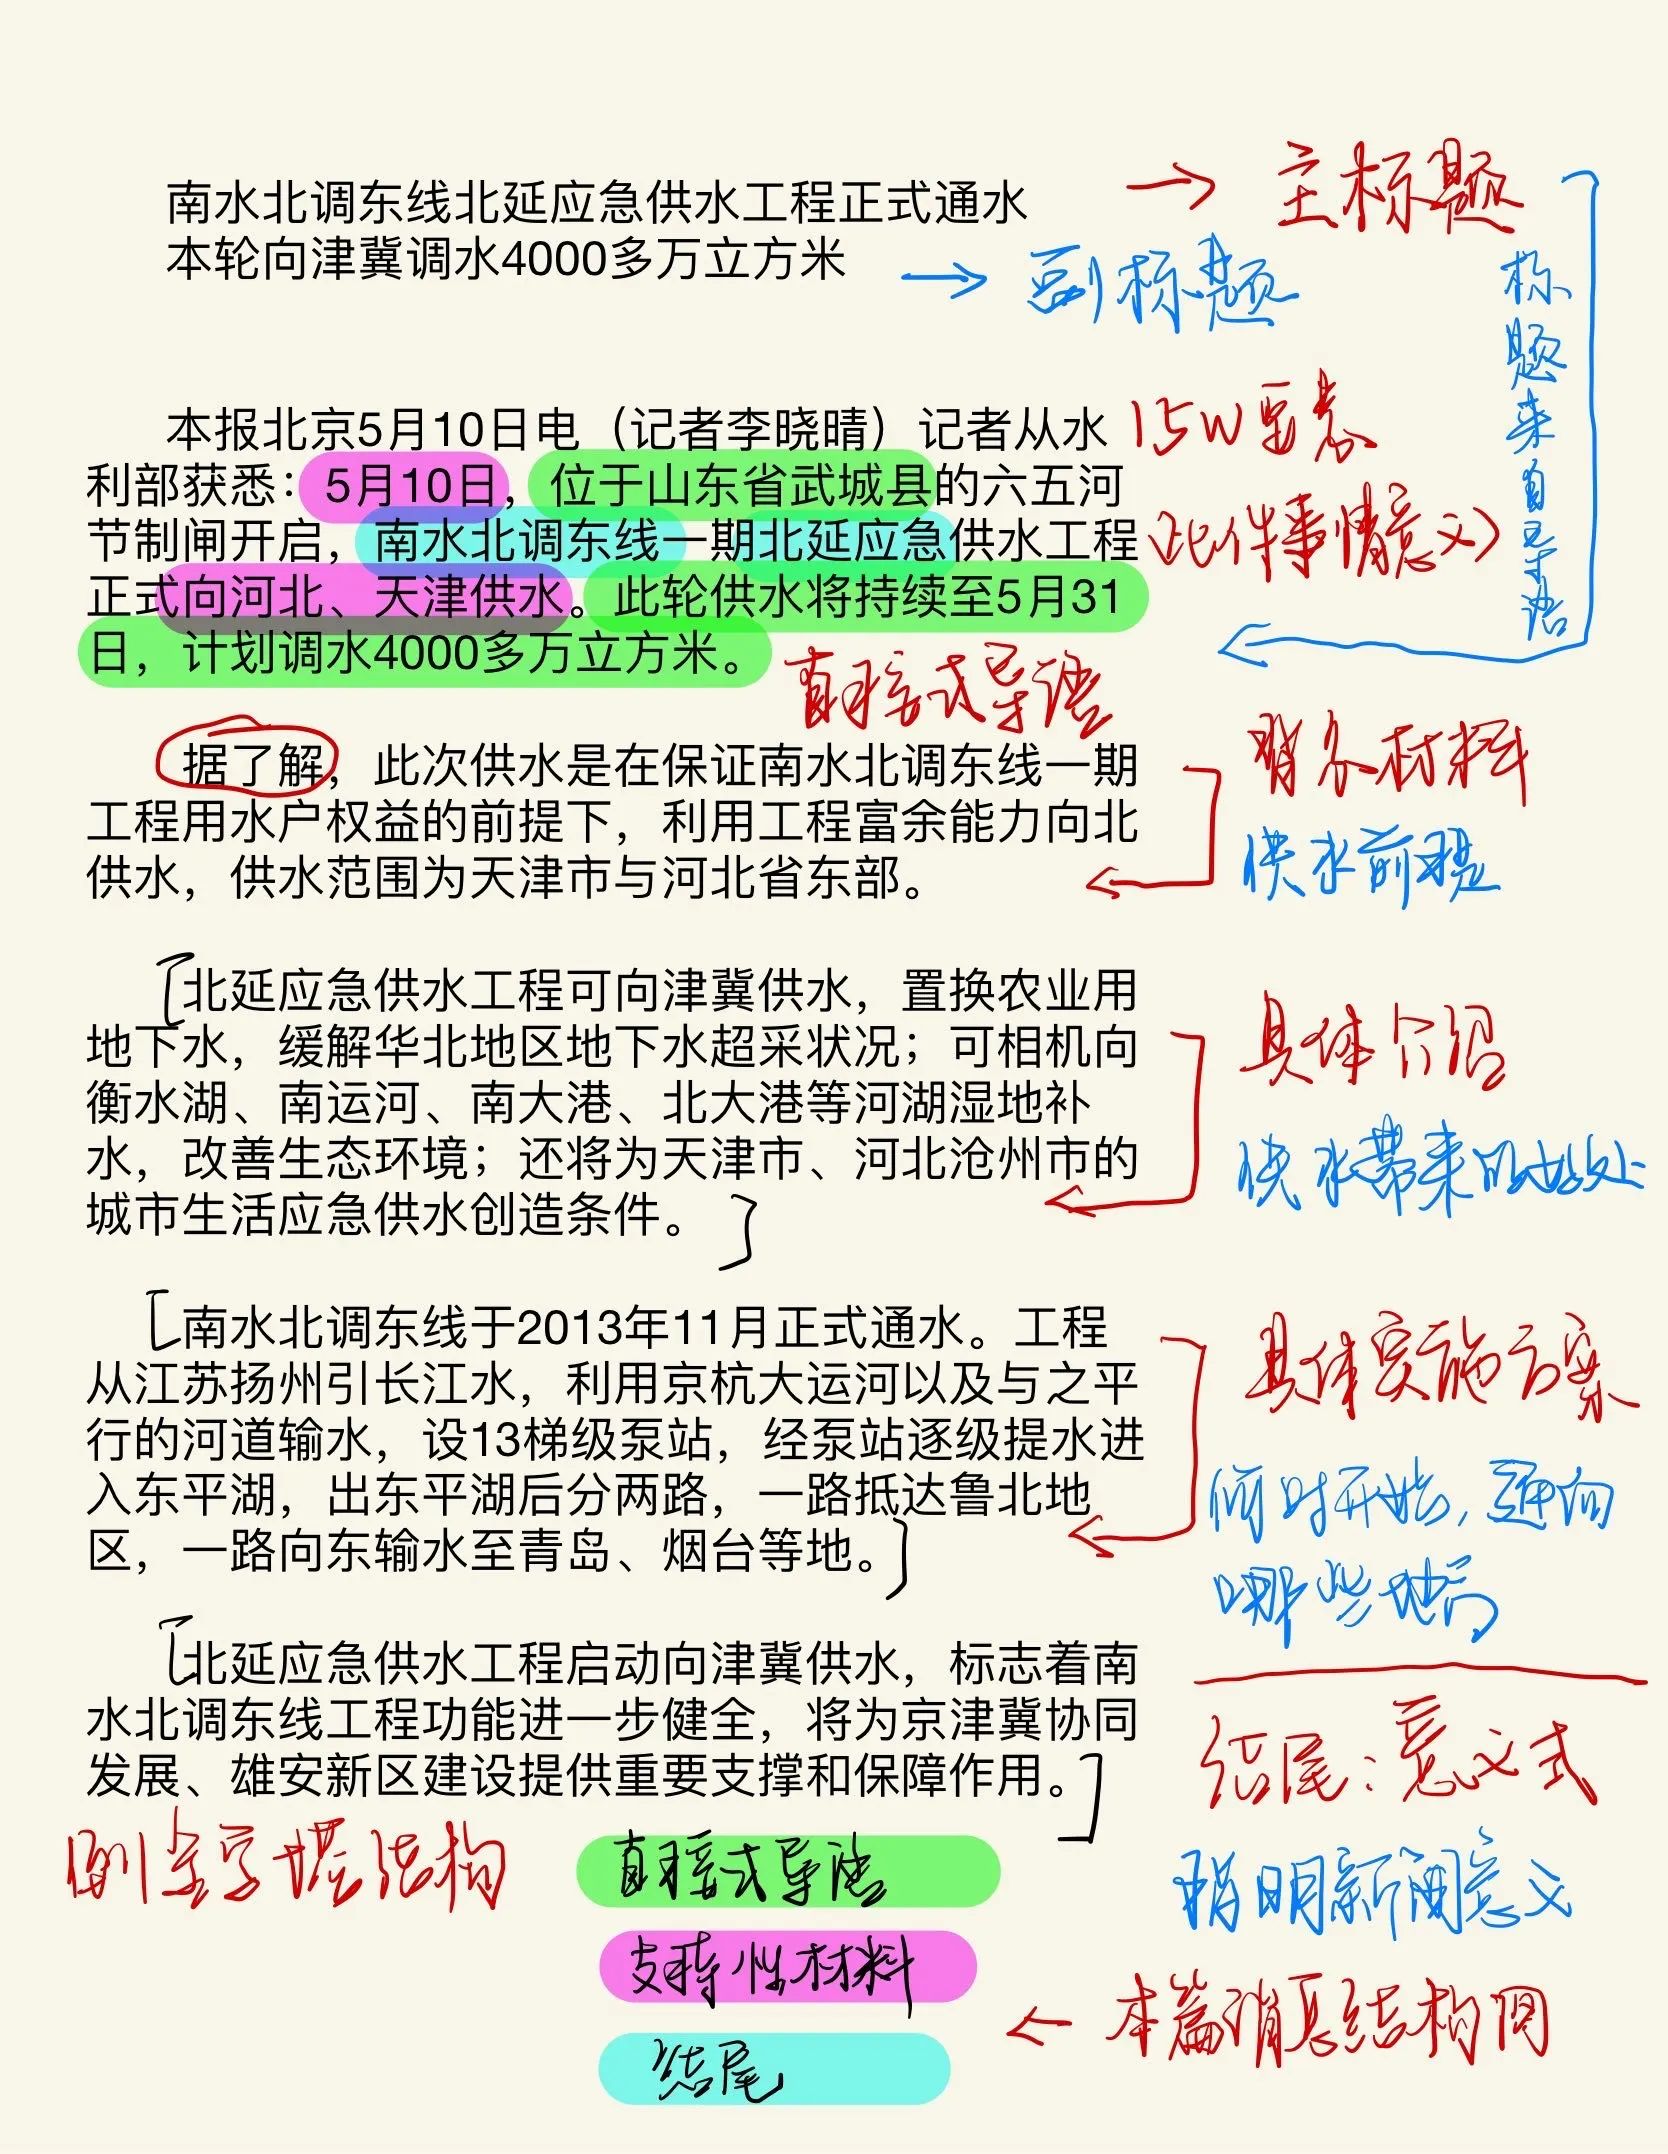 南水北调东线北延应急供水工程正式通水
→ 主标题
本轮向津冀调水4000多万立方米
→ 副标题
标题来自导语
本报北京5月10日电（记者李晓晴）记者从水
利部获悉：5月10日，位于山东省武城县的六五河
节制闸开启，南水北调东线一期北延应急供水工程
正式向河北、天津供水。此轮供水将持续至5月31
日，计划调水4000多万立方米。
15W要素
（此件事情意义）
直接式导语
据了解，此次供水是在保证南水北调东线一期
工程用水户权益的前提下，利用工程富余能力向北
供水，供水范围为天津市与河北省东部。
背景材料
供水前提
北延应急供水工程可向津冀供水，置换农业用
地下水，缓解华北地区地下水超采状况；可相机向
衡水湖、南运河、南大港、北大港等河湖湿地补
水，改善生态环境；还将为天津市、河北沧州市的
城市生活应急供水创造条件。
具体介绍
供水带来的好处
南水北调东线于2013年11月正式通水。工程
从江苏扬州引长江水，利用京杭大运河以及与之平
行的河道输水，设13梯级泵站，经泵站逐级提水进
入东平湖，出东平湖后分两路，一路抵达鲁北地
区，一路向东输水至青岛、烟台等地。
具体实施方案
何时开始，通向
哪些地方
北延应急供水工程启动向津冀供水，标志着南
水北调东线工程功能进一步健全，将为京津冀协同
发展、雄安新区建设提供重要支撑和保障作用。
结尾：意义式
指明新闻意义
倒金字塔结构
直接式导语
支持性材料
结尾
← 本篇消息结构图